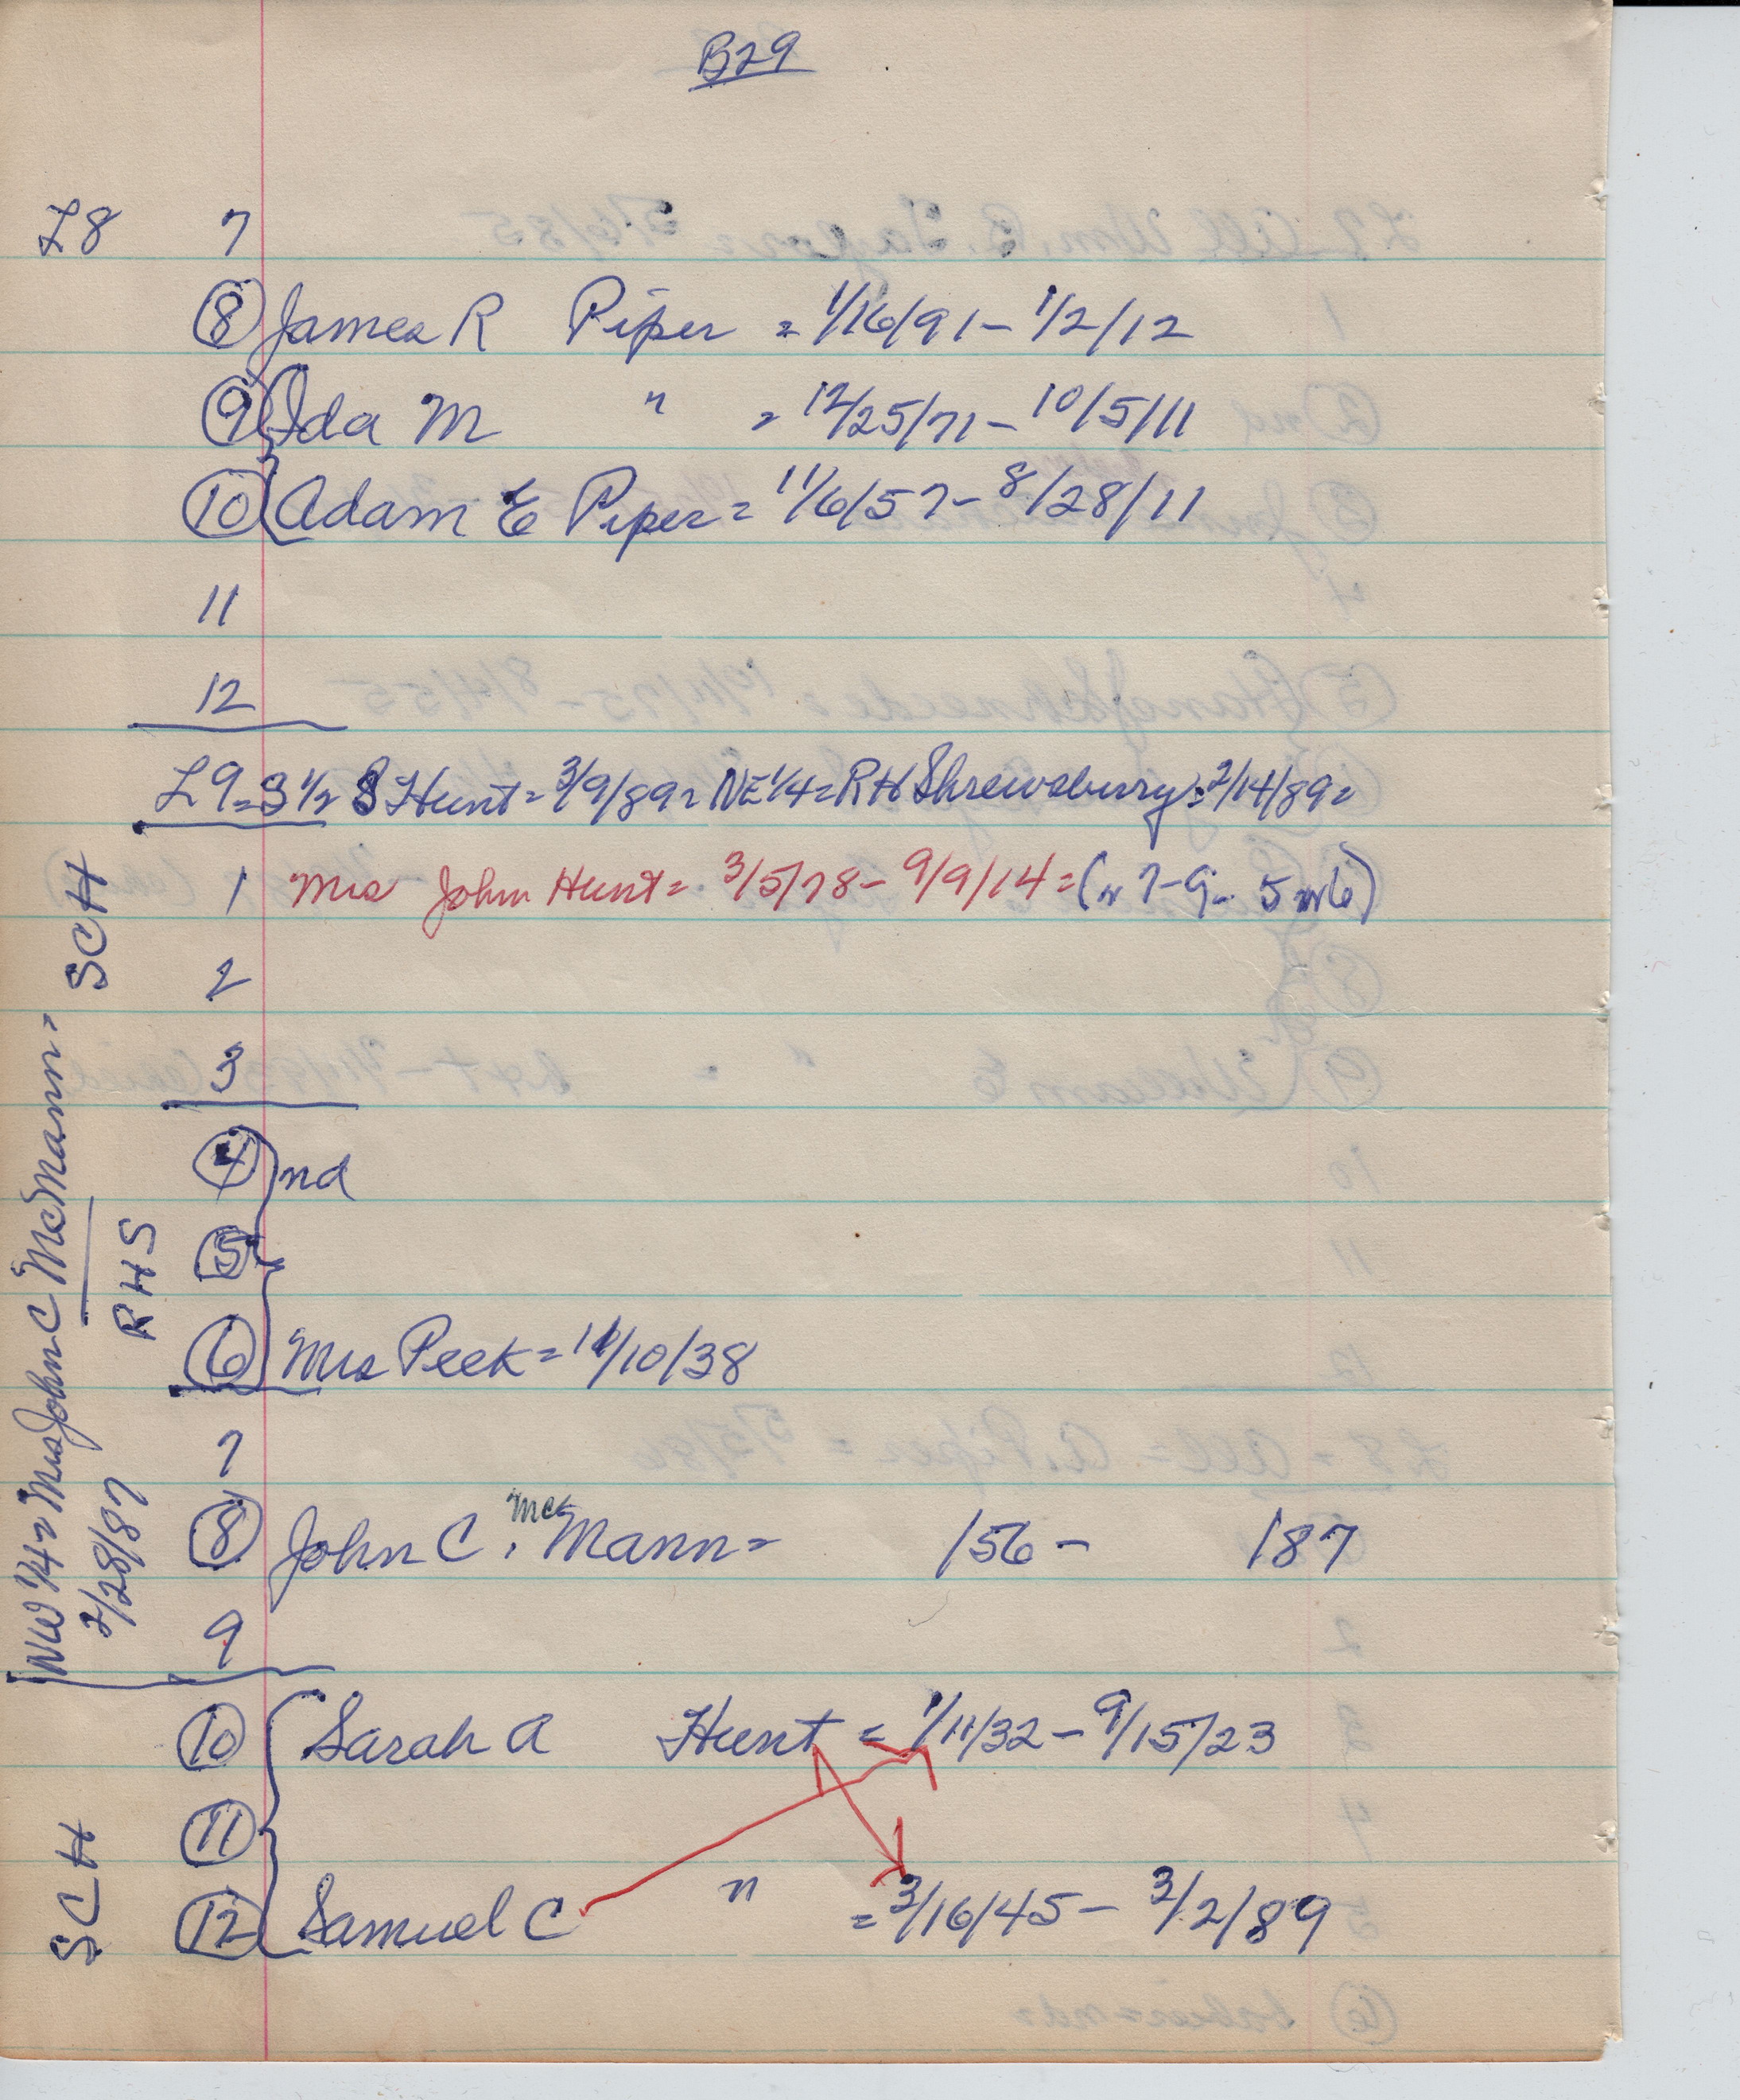 B29
L8 7
8 James R Piper = 1/16/91 - 1/2/12
9 Ida M " = 12/25/71 - 10/5/11
10 Adam E Piper = 11/6/57 - 8/28/11
11
12
L9 = S 1/2 S Hunt = 3/9/89 = NE 1/4 = RH Shrewsbury = 2/14/89 =
1 Mrs John Hunt = 3/5/78 - 9/9/14 = (n 7-9- 5 or 6)
2
3
4 nd
5
6 Mrs Peek = 11/10/38
7
8 John C. McMann = /56 - /87
9
10 Sarah A Hunt = 1/11/32 - 9/15/23
11
12 Samuel C " = 3/16/45 - 3/2/89
SCH
RHS
NW 1/4 = Mrs John C McMann =
2/28/87
SCH